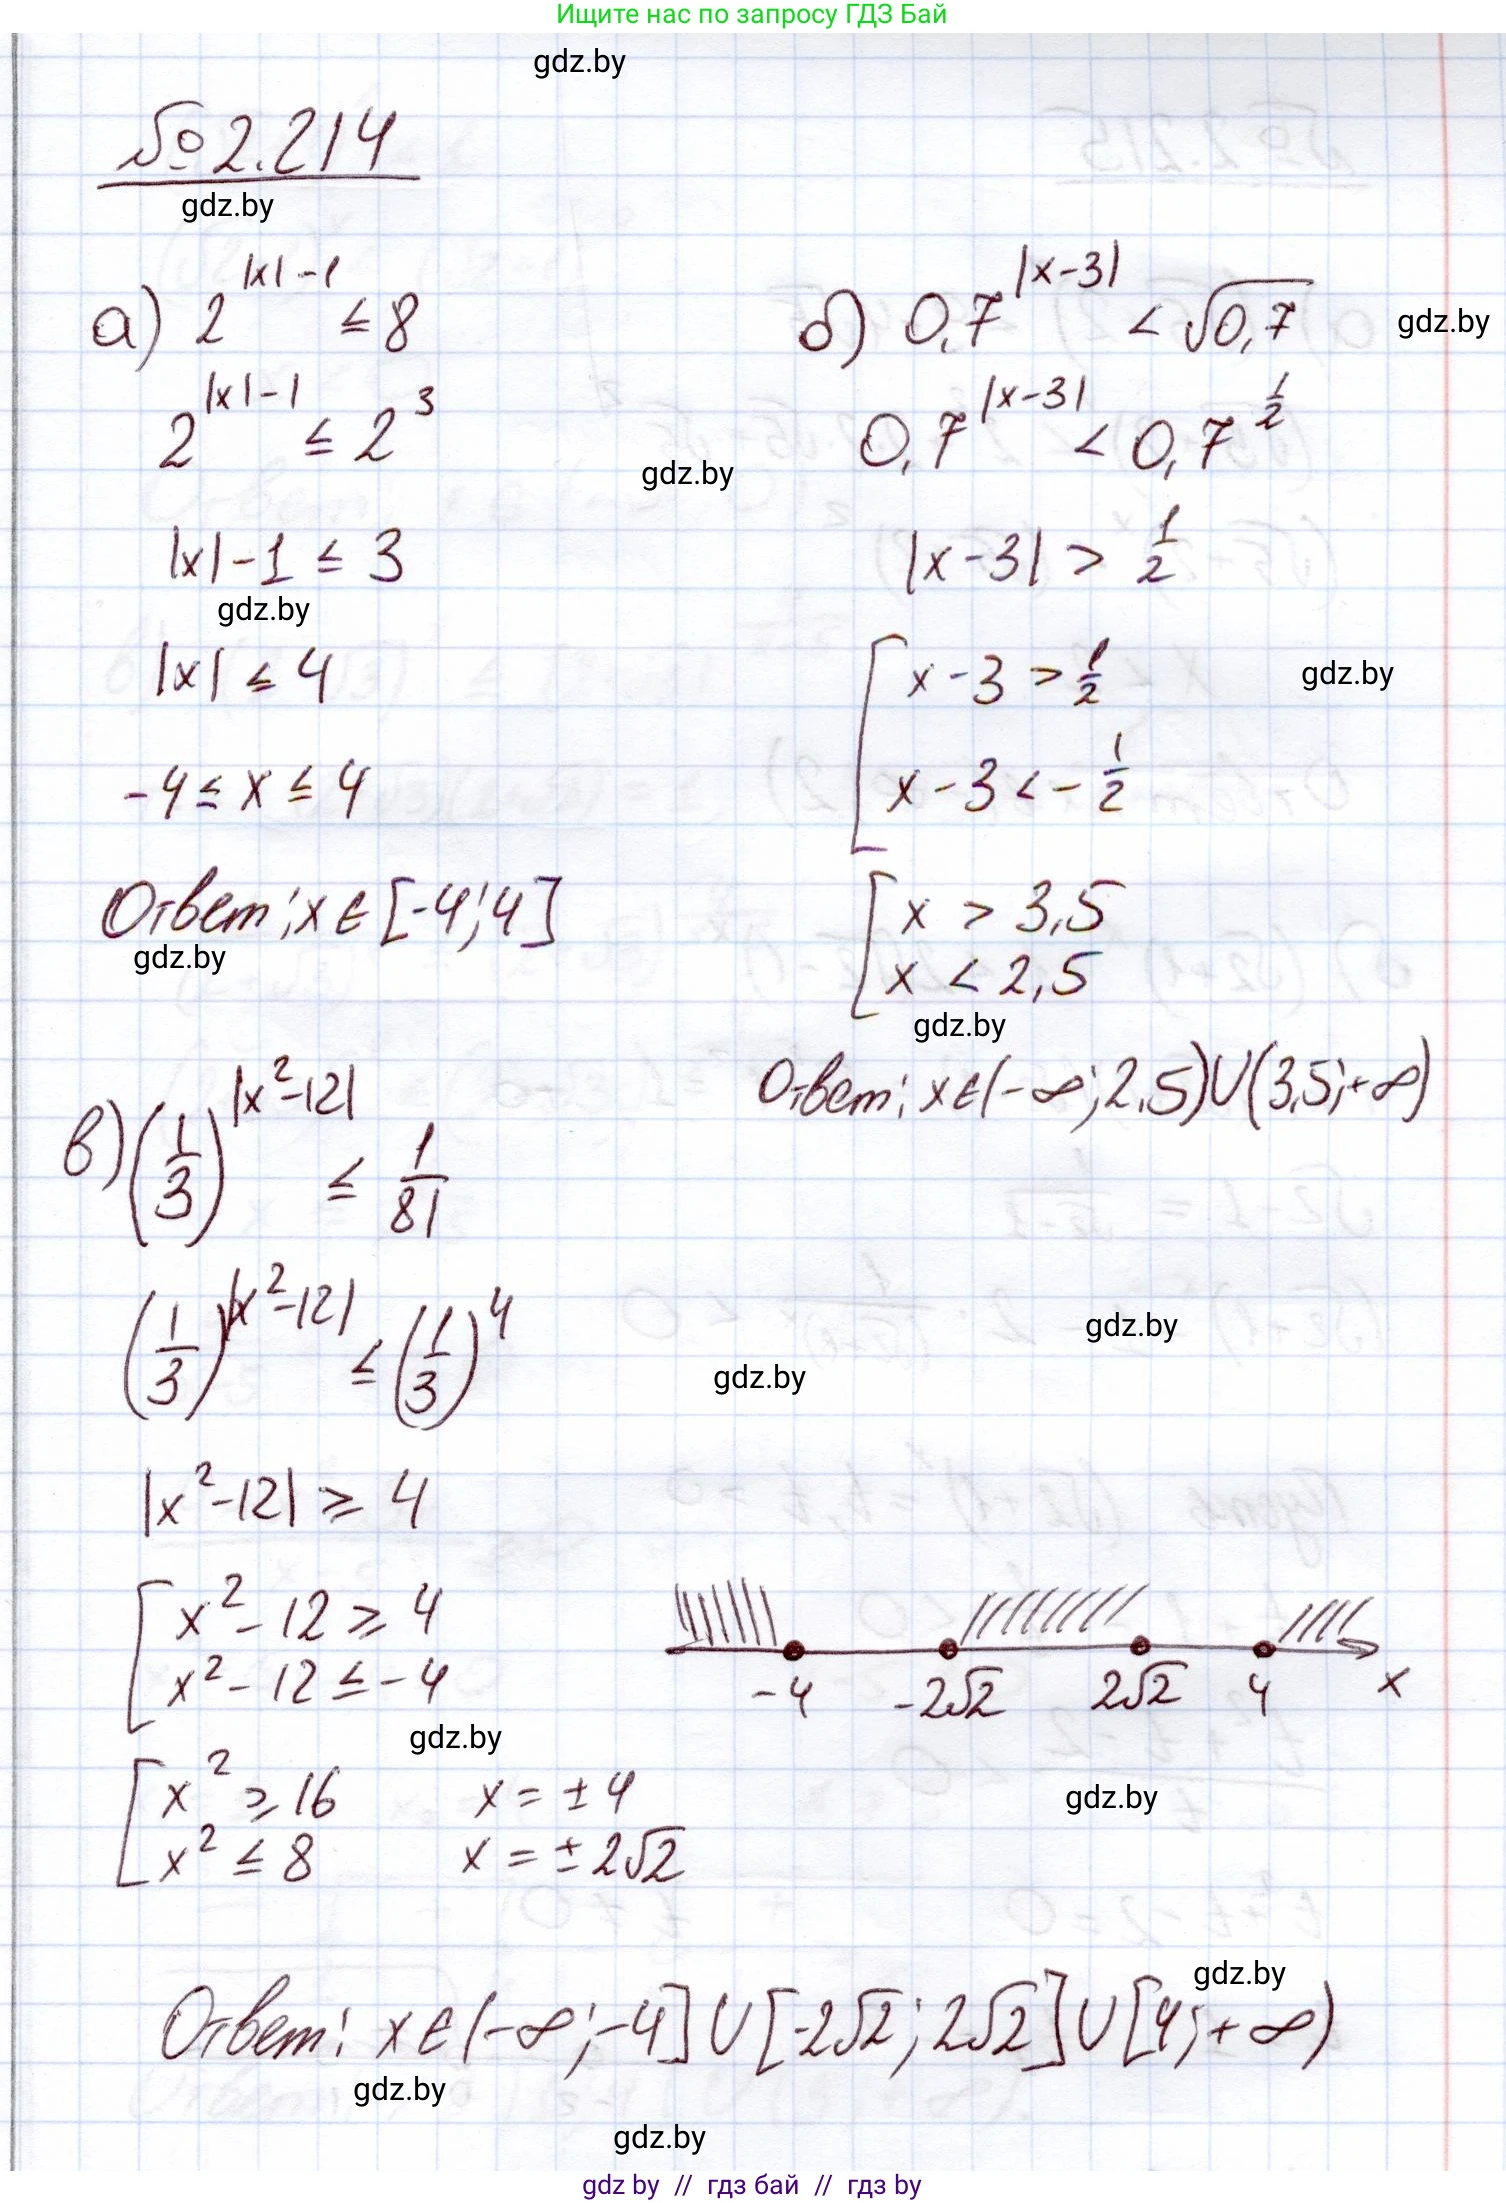 Ищите нас по запросу ГДЗ Бай
gdz.by
№ 2.214
gdz.by
а) 2^{|x|-1} ≤ 8
2^{|x|-1} ≤ 2^3
|x|-1 ≤ 3
gdz.by
|x| ≤ 4
-4 ≤ x ≤ 4
Ответ: x ∈ [-4; 4]
gdz.by
б) 0,7^{|x-3|} < √0,7
gdz.by
0,7^{|x-3|} < 0,7^{1/2}
gdz.by
|x-3| > 1/2
[ x-3 > 1/2
gdz.by
x-3 < -1/2
[ x > 3,5
x < 2,5
gdz.by
Ответ: x ∈ (-∞; 2,5) ∪ (3,5; +∞)
в) (1/3)^{|x²-12|} ≤ 1/81
(1/3)^{|x²-12|} ≤ (1/3)^4
gdz.by
gdz.by
|x²-12| ≥ 4
[ x²-12 ≥ 4
x²-12 ≤ -4
-4 -2√2 2√2 4 x
gdz.by
gdz.by
[ x² ≥ 16 x = ±4
x² ≤ 8 x = ±2√2
gdz.by
Ответ: x ∈ (-∞; -4] ∪ [-2√2; 2√2] ∪ [4; +∞)
gdz.by
gdz.by
gdz by // гдз бай // гдз by